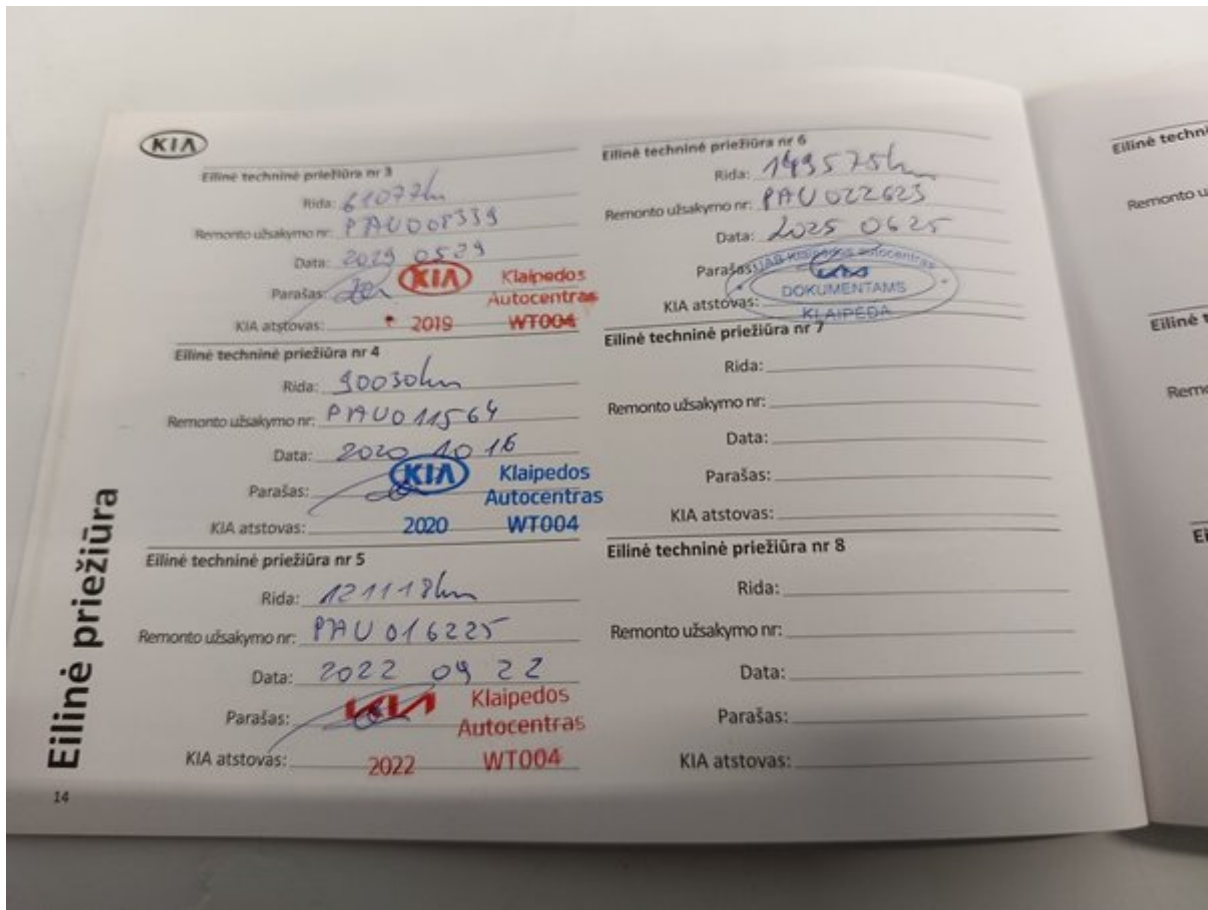 KIA
Eilinė techninė priežiūra nr 3
Rida: 61077km
Remonto užsakymo nr: PAU008339
Data: 2019 05 29
Parašas:
KIA Klaipedos
Autocentras
KIA atstovas: 2019 WT004
Eilinė techninė priežiūra nr 4
Rida: 90030km
Remonto užsakymo nr: PAU011564
Data: 2020 10 16
Parašas:
KIA Klaipedos
Autocentras
KIA atstovas: 2020 WT004
Eilinė techninė priežiūra nr 5
Rida: 121118km
Remonto užsakymo nr: PAU016225
Data: 2022 09 22
Parašas:
KIA Klaipedos
Autocentras
KIA atstovas: 2022 WT004
Eilinė priežiūra
14
Eilinė techninė priežiūra nr 6
Rida: 149575km
Remonto užsakymo nr: PAU022623
Data: 2025 06 25
Parašas:
UAB Klaipėdos autocentras
DOKUMENTAMS
KLAIPĖDA
KIA atstovas:
Eilinė techninė priežiūra nr 7
Rida:
Remonto užsakymo nr:
Data:
Parašas:
KIA atstovas:
Eilinė techninė priežiūra nr 8
Rida:
Remonto užsakymo nr:
Data:
Parašas:
KIA atstovas:
Eilinė techni
Remonto u
Eilinė t
Remo
Ei